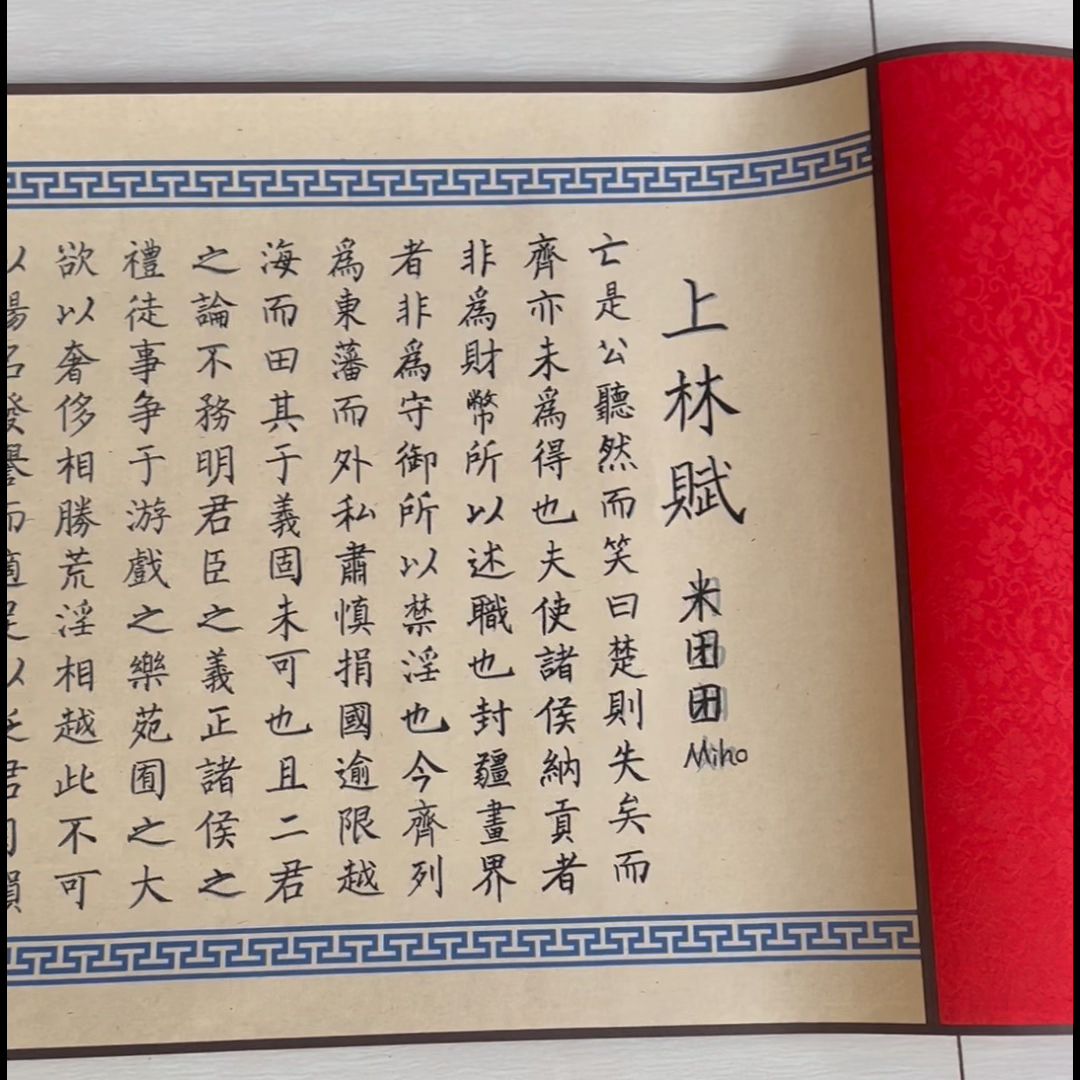 上林賦
米田田
Miho
亡是公聽然而笑曰楚則失矣而
齊亦未為得也夫使諸侯納貢者
非為財幣所以述職也封疆畫界
者非為守御所以禁淫也今齊列
為東藩而外私肅慎捐國逾限越
海而田其于義固未可也且二君
之論不務明君臣之義正諸侯之
禮徒事争于游戲之樂苑囿之大
欲以奢侈相勝荒淫相越此不可